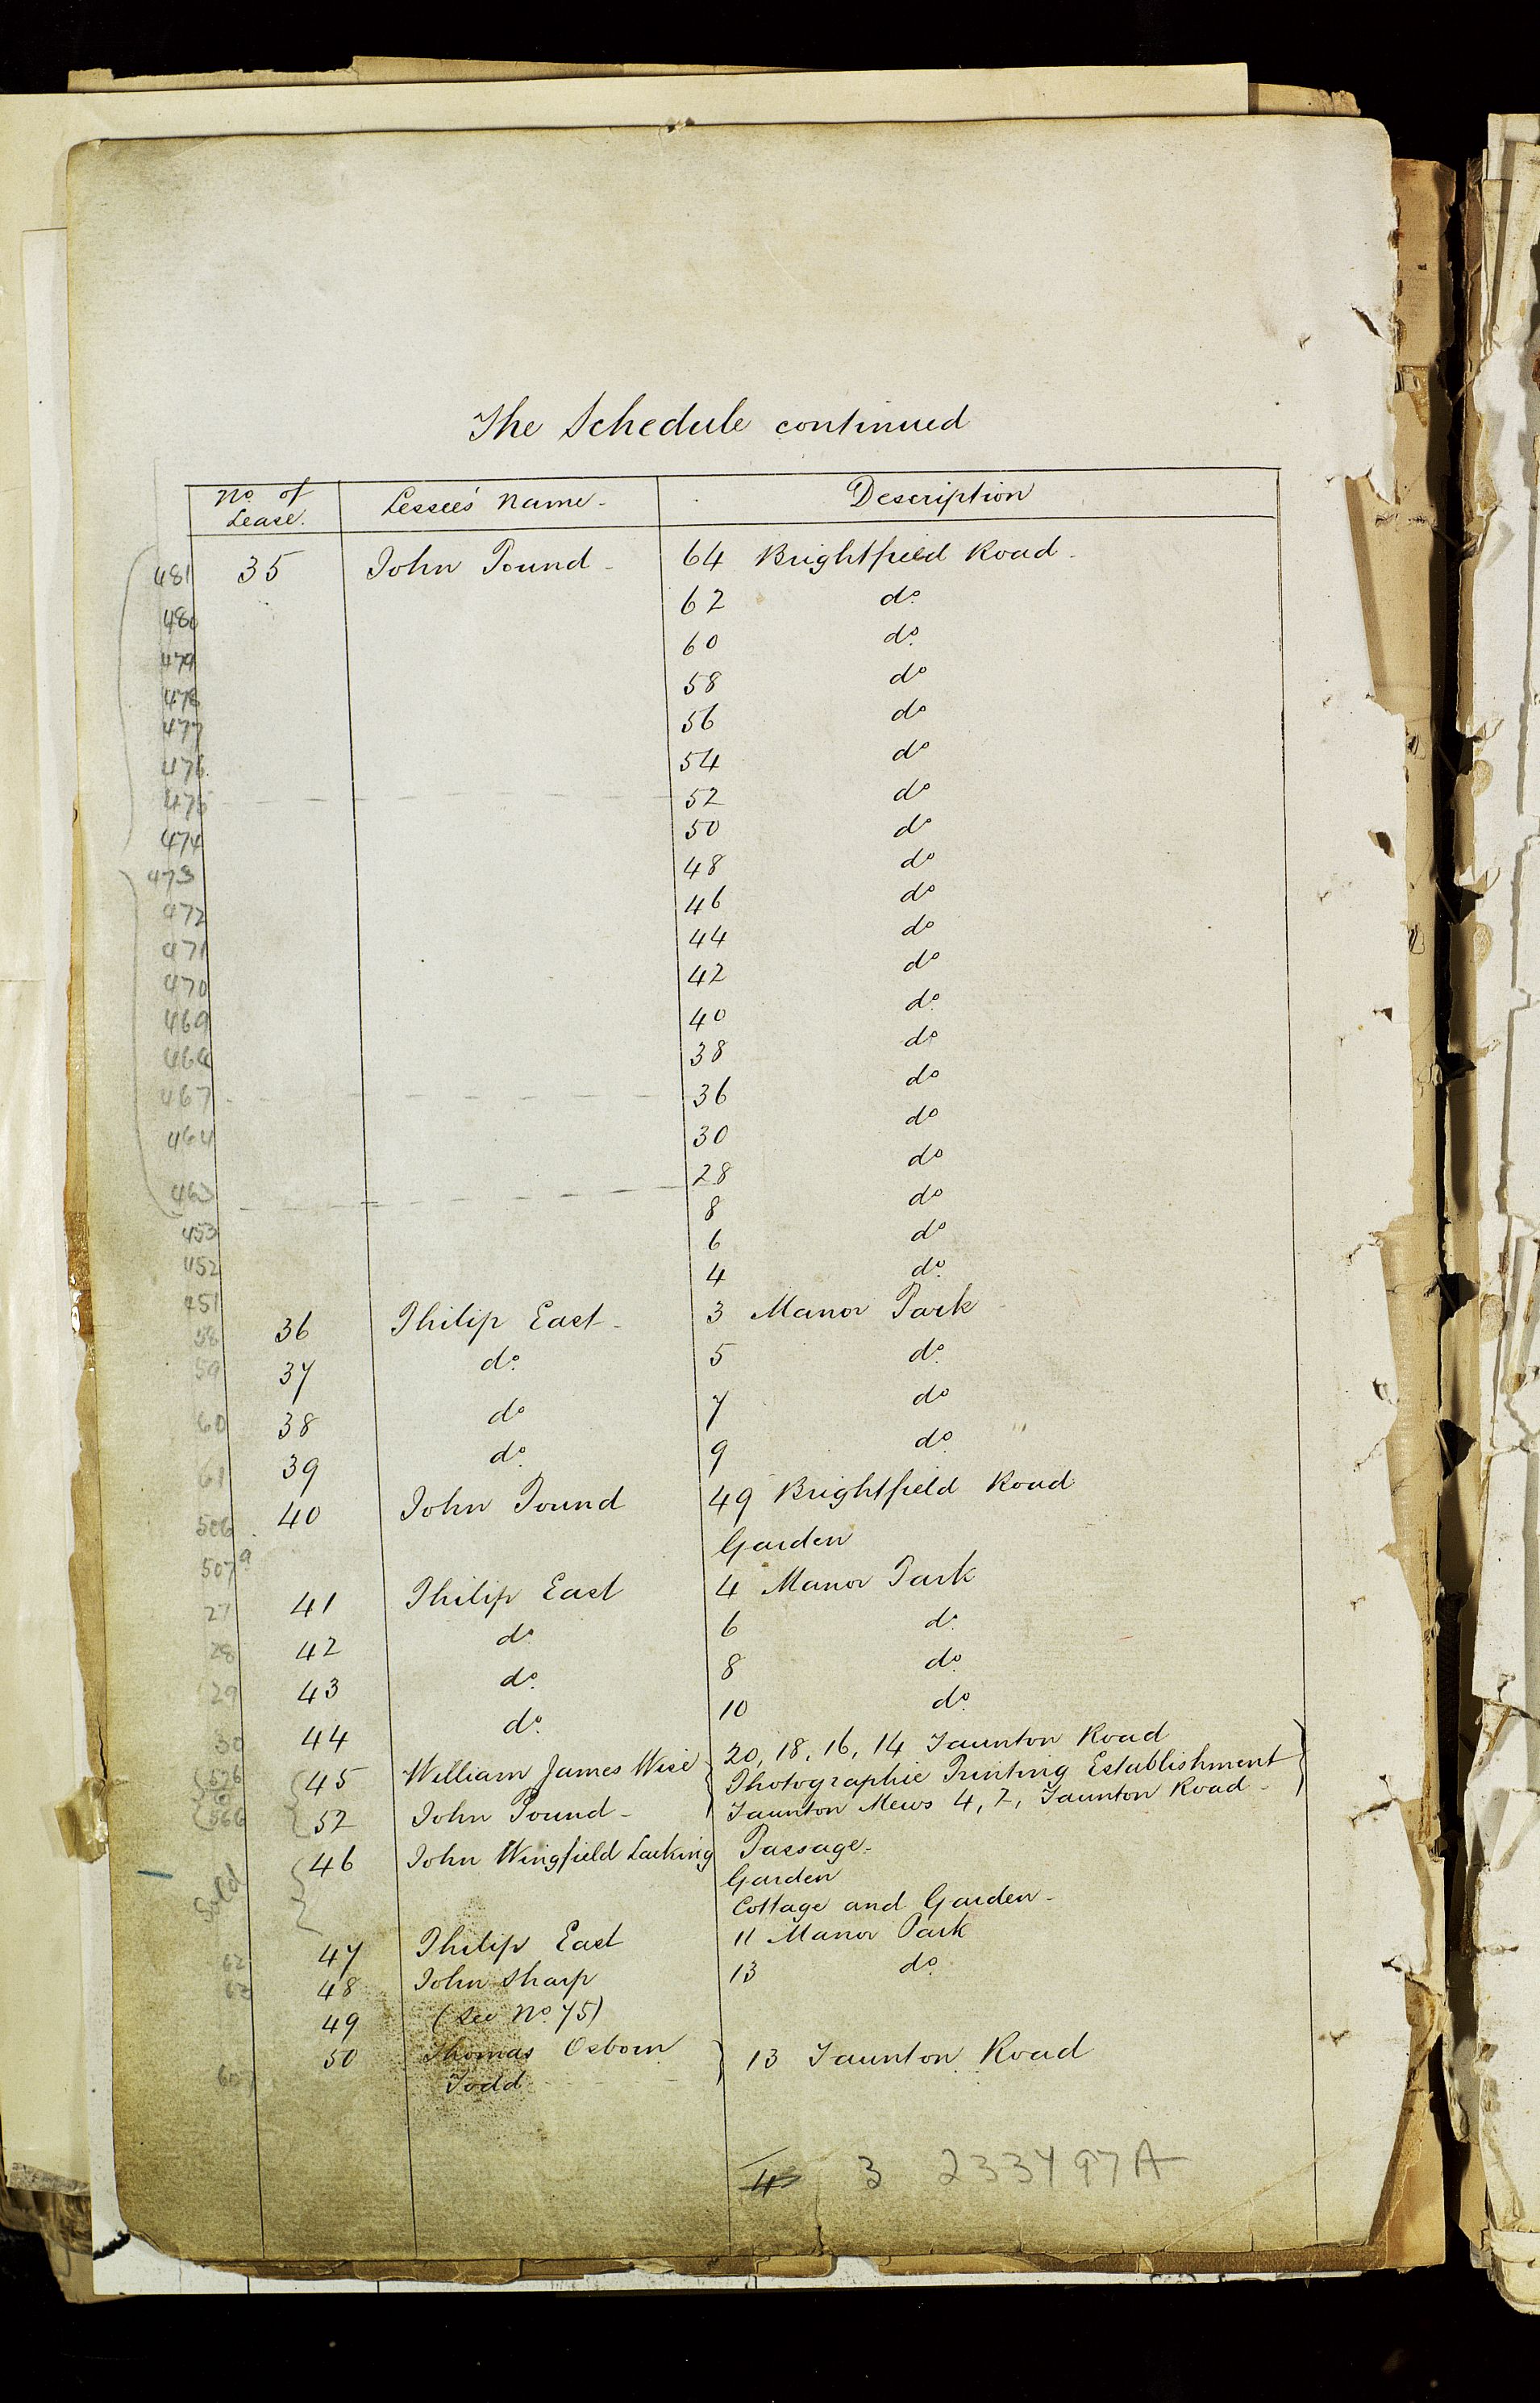 The Schedule continued
No. of Lease. Lessee's Name - Description
481 35 John Pound - 64 Brightfield Road -
480 62 do.
479 60 do.
478 58 do
477 56 do
476 54 do
475 52 do
474 50 do
473 48 do
472 46 do
471 44 do
470 42 do
469 40 do.
468 38 do
467 36 do
464 30 do
463 28 do
453 8 do
452 6 do
451 4 do.
58 36 Philip East - 3 Manor Park
59 37 do. 5 do.
60 38 do 7 do
61 39 do. 9 do.
506 40 John Pound 49 Brightfield Road
507a Garden
27 41 Philip East 4 Manor Park
28 42 do. 6 do.
29 43 do. 8 do.
30 44 do. 10 do.
45 William James Wise 20, 18, 16, 14 Taunton Road
Photographic Printing Establishment
566 52 John Pound - Taunton Mews 4, 2, Taunton Road -
Sold 46 John Wingfield Larking Passage -
Garden
Cottage and Garden -
62 47 Philip East 11 Manor Park
48 John Sharp 13 do.
49 (See No. 75)
50 Thomas Osborn Todd 13 Taunton Road
4 3 233497A